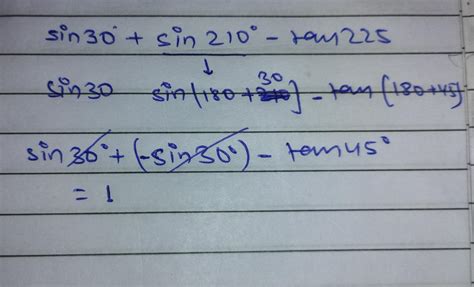 sin30° + sin 210° - tan225
sin30 sin(180+30] - tan(180+45]
sin30° + (-sin30°) - tan45°
= 1